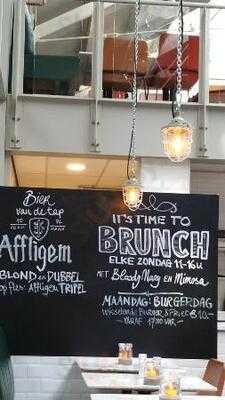 Bier
van de tap
Affligem
BLOND en DUBBEL
op fles: Affligem TRIPEL
IT'S TIME TO
BRUNCH
ELKE ZONDAG 11-16u
MET Bloody Mary EN Mimosa
MAANDAG: BURGERDAG
Wisselende Burger & Friet €10,-
VANAF 17:00 uur